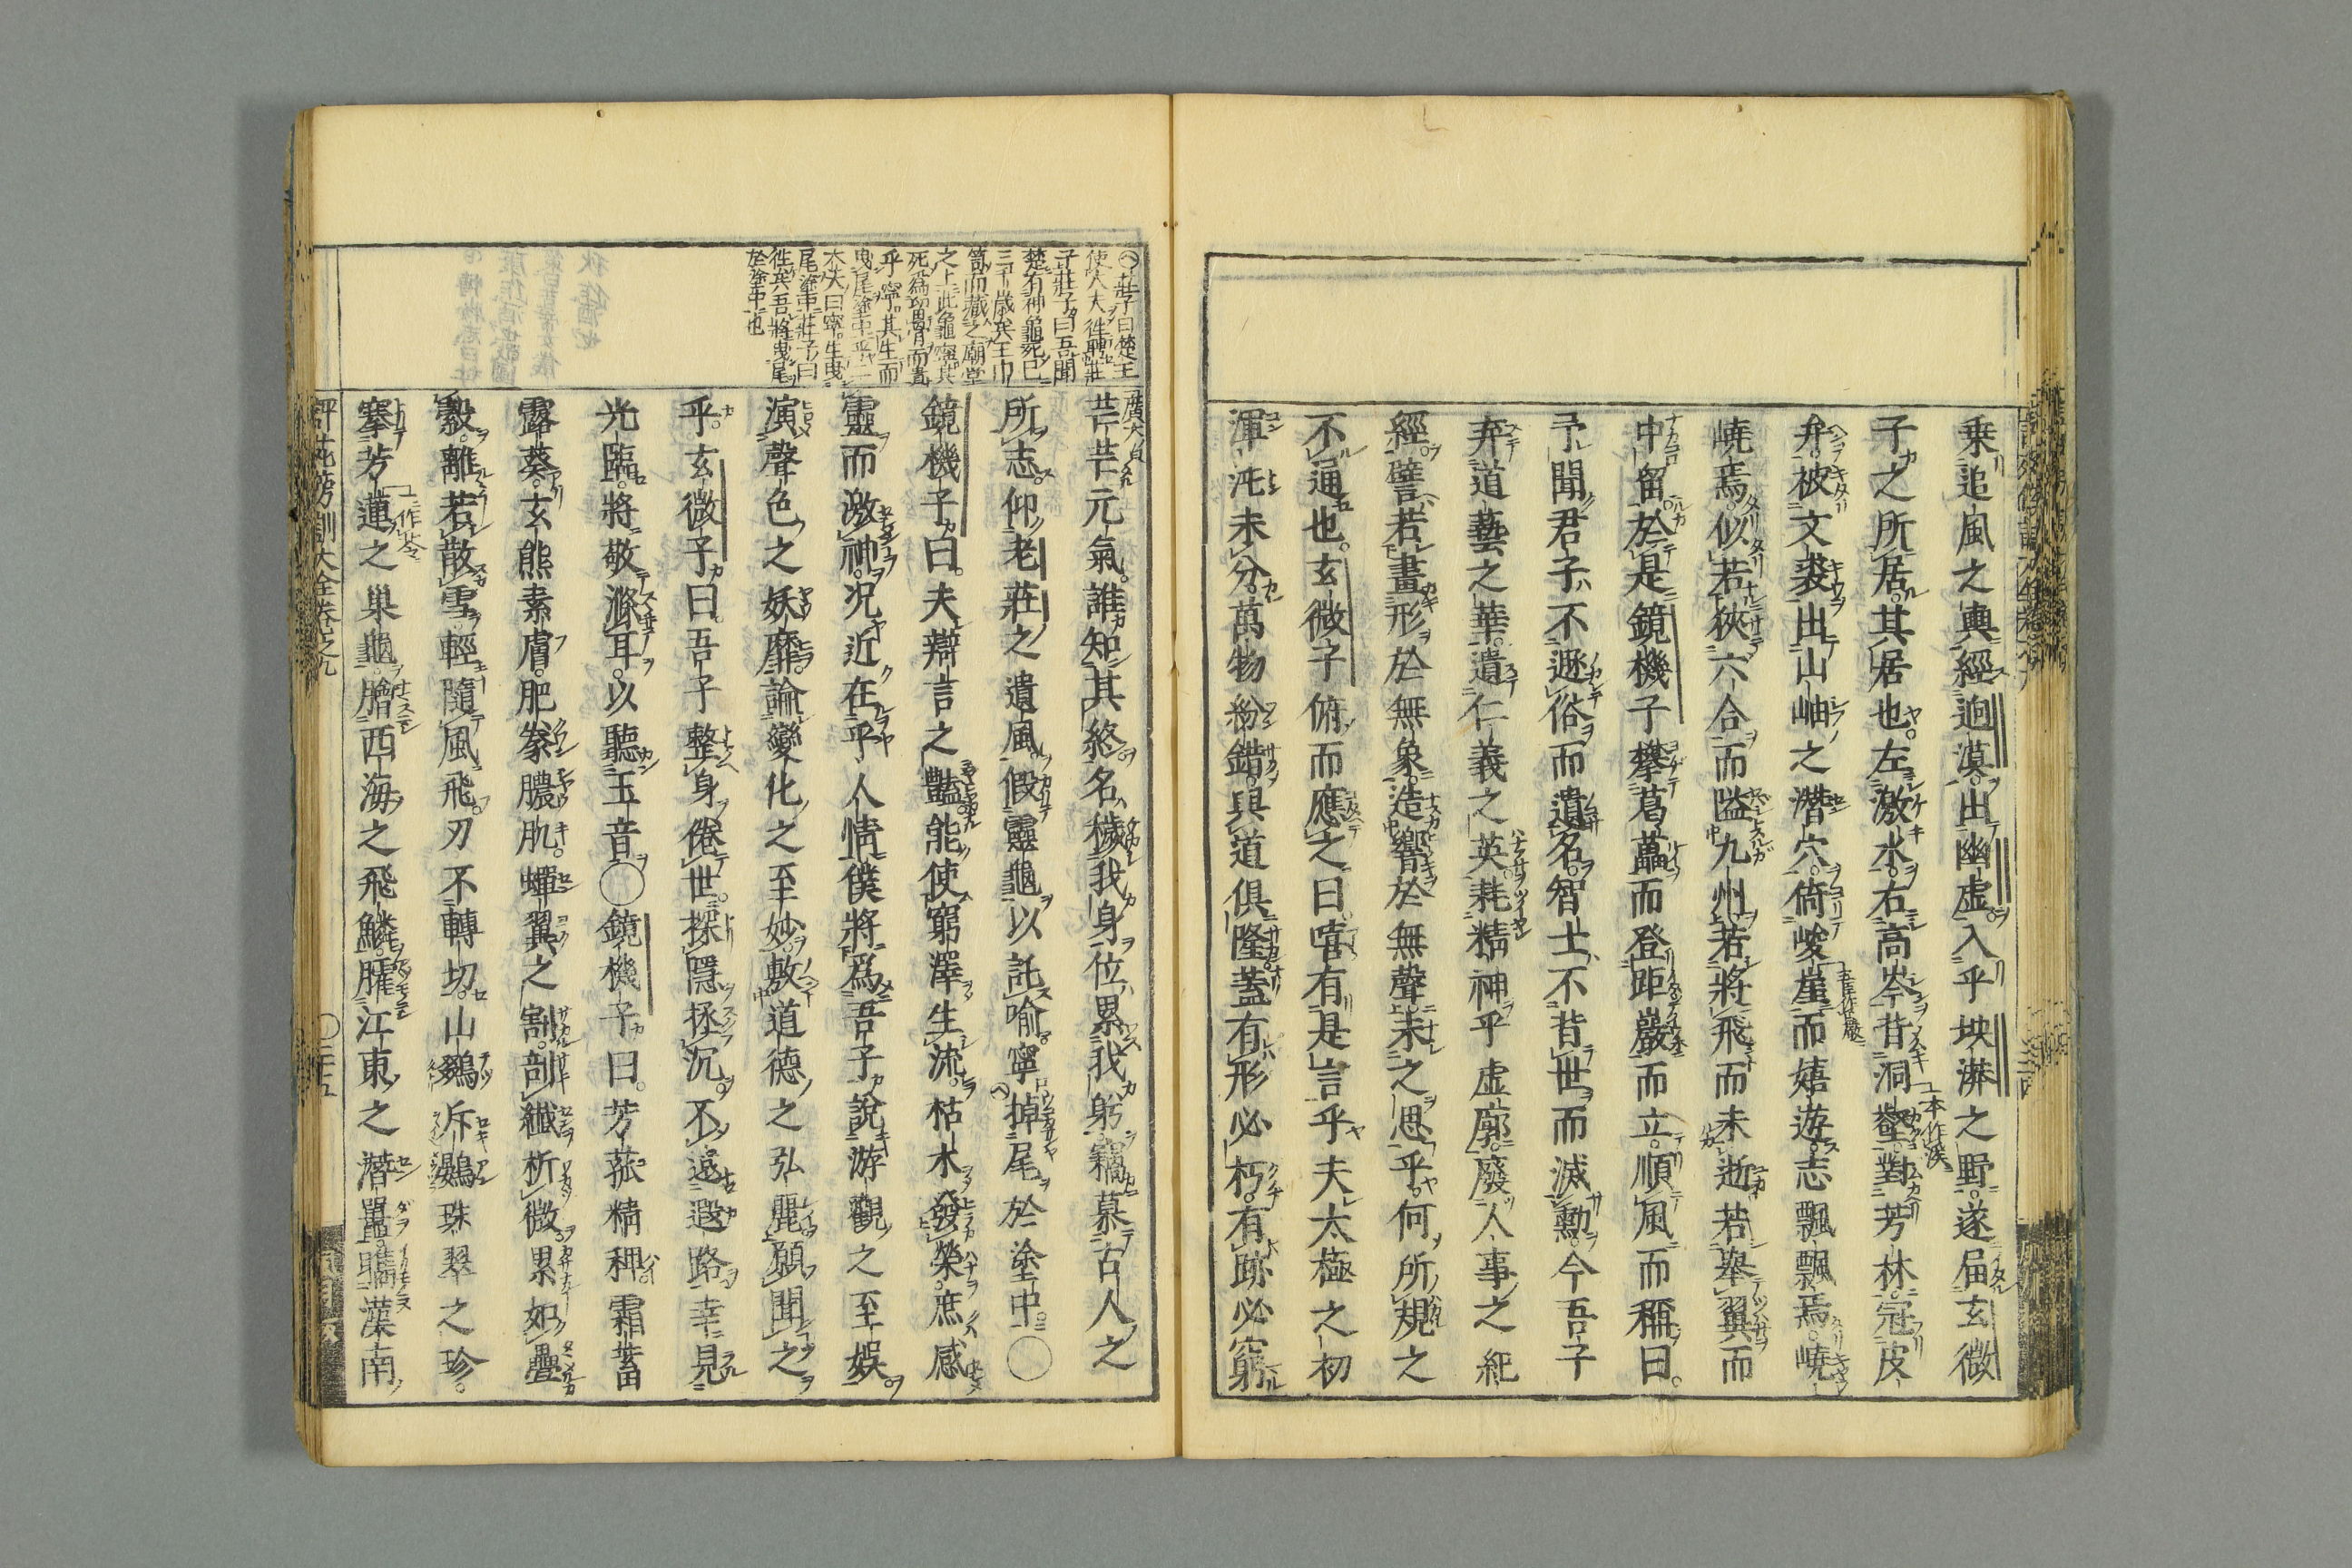 乗追風之輿經逈漠出幽虚入乎坱漭之野遂届玄微
子之所居其居也左激水右高岑背洞壑對芳林冠皮
弁被文裘出山岫之潜穴倚峻崖而嬉遊志飄飄焉嶢
嶢焉似若狹六合而隘九州若將飛而未逝若擧翼而
中留於是鏡機子攀葛藟而登距巖而立順風而稱曰
予聞君子不遯俗而遺名智士不背世而滅勳今吾子
弃道藝之華遺仁義之英耗精神乎虚廓廢人事之紀
經譬若畫形於無象造響於無聲未之思乎何所規之
不通也玄微子俯而應之曰嘻有是言乎夫太極之初
渾沌未分萬物紛錯與道俱隆蓋有形必朽有跡必窮
莊子曰楚王
使大夫徃聘莊
子莊子曰吾聞
楚有神龜死已
三千歳矣王巾
笥而藏之廟堂
之上此龜寧其
死爲留骨而貴
乎寧其生而
曳尾塗中乎二
大夫曰寧生曳
尾塗中莊子曰
徃矣吾將曳尾
於塗中也
芒芒元氣誰知其終名穢我身位累我躬竊慕古人之
所志仰老莊之遺風假靈龜以託喻寧掉尾於塗中〇
鏡機子曰夫辯言之豔能使窮澤生流枯木發榮庶感
靈而激神况近在乎人情僕將爲吾子說游觀之至娯
演聲色之妖靡論變化之至妙敷道德之弘麗願聞之
乎玄微子曰吾子整身倦世探隱拯沉不遠遐路幸見
光臨將敬滌耳以聽玉音〇鏡機子曰芳菰精稗霜蓄
露葵玄熊素膚肥豢膿肌蟬翼之割剖纖析微累如疊
縠離若散雪輕隨風飛刃不轉切山鵽斥鷃珠翠之珍
搴芳蓮之巢龜膾西海之飛鱗臛江東之潜鼉臇漢南